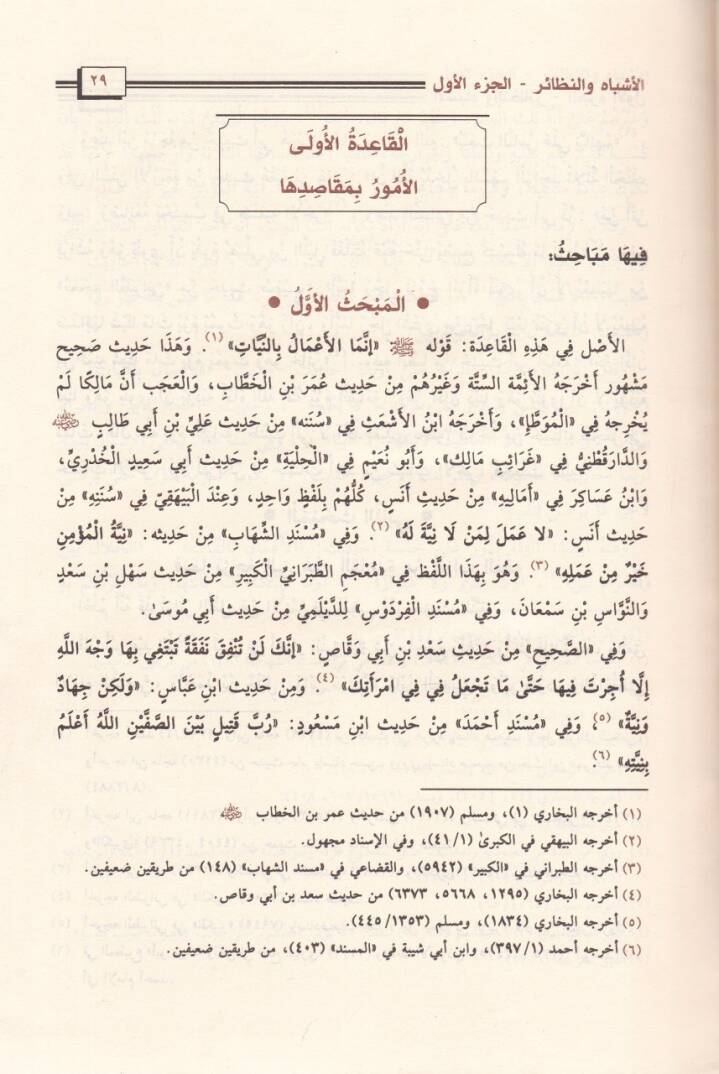 الأشباه والنظائر - الجزء الأول
٢٩
الْقَاعِدَةُ الأُولَى
الأُمُورُ بِمَقَاصِدِهَا
فِيهَا مَبَاحِثُ:
• الْمَبْحَثُ الأَوَّلُ •
الأَصْل فِي هَذِهِ الْقَاعِدَة: قَوْله ﷺ «إِنَّمَا الأَعْمَالُ بِالنِّيَّاتِ» (١). وَهَذَا حَدِيث صَحِيح
مَشْهُور أَخْرَجَهُ الأَئِمَّة السِّتَّة وَغَيْرُهُمْ مِنْ حَدِيث عُمَرَ بْنِ الْخَطَّابِ، وَالْعَجَب أَنَّ مَالِكًا لَمْ
يُخْرِجهُ فِي «الْمُوَطَّإِ»، وَأَخْرَجَهُ ابْنُ الأَشْعَثِ فِي «سُنَنه» مِنْ حَدِيث عَلِيِّ بْنِ أَبِي طَالِبٍ رضي الله عنه
وَالدَّارَقُطْنِيُّ فِي «غَرَائِبِ مَالِك»، وَأَبُو نُعَيْمٍ فِي «الْحِلْيَةِ» مِنْ حَدِيث أَبِي سَعِيدٍ الْخُدْرِيِّ،
وَابْنُ عَسَاكِرَ فِي «أَمَالِيهِ» مِنْ حَدِيثِ أَنَسٍ، كُلُّهُمْ بِلَفْظٍ وَاحِدٍ، وَعِنْدَ الْبَيْهَقِيِّ فِي «سُنَنِهِ» مِنْ
حَدِيث أَنَسٍ: «لا عَمَلَ لِمَنْ لَا نِيَّةَ لَهُ» (٢). وَفِي «مُسْنَدِ الشِّهَابِ» مِنْ حَدِيثه: «نِيَّةُ الْمُؤْمِنِ
خَيْرٌ مِنْ عَمَلِهِ» (٣). وَهُوَ بِهَذَا اللَّفْظ فِي «مُعْجَمِ الطَّبَرَانِيِّ الْكَبِيرِ» مِنْ حَدِيث سَهْلِ بْنِ سَعْدٍ
وَالنَّوَّاس بْنِ سَمْعَانَ، وَفِي «مُسْنَدِ الْفِرْدَوْسِ» لِلدَّيْلَمِيِّ مِنْ حَدِيث أَبِي مُوسَىٰ.
وَفِي «الصَّحِيحِ» مِنْ حَدِيثِ سَعْدِ بْنِ أَبِي وَقَّاصٍ: «إِنَّكَ لَنْ تُنْفِقَ نَفَقَةً تَبْتَغِي بِهَا وَجْهَ اللَّهِ
إِلَّا أُجِرْتَ فِيهَا حَتَّىٰ مَا تَجْعَلُ فِي فِي امْرَأَتِكَ» (٤). وَمِنْ حَدِيث ابْنِ عَبَّاسٍ: «وَلَكِنْ جِهَادٌ
وَنِيَّةٌ» (٥)، وَفِي «مُسْنَدِ أَحْمَدَ» مِنْ حَدِيث ابْنِ مَسْعُودٍ: «رُبَّ قَتِيلٍ بَيْنَ الصَّفَّيْنِ اللَّهُ أَعْلَمُ
بِنِيَّتِهِ» (٦).
(١) أخرجه البخاري (١)، ومسلم (١٩٠٧) من حديث عمر بن الخطاب رضي الله عنه
(٢) أخرجه البيهقي في الكبرىٰ (٤١/١)، وفي الإسناد مجهول.
(٣) أخرجه الطبراني في «الكبير» (٥٩٤٢)، والقضاعي في «مسند الشهاب» (١٤٨) من طريقين ضعيفين.
(٤) أخرجه البخاري (١٢٩٥، ٥٦٦٨، ٦٣٧٣) من حديث سعد بن أبي وقاص.
(٥) أخرجه البخاري (١٨٣٤)، ومسلم (٤٤٥/١٣٥٣).
(٦) أخرجه أحمد (٣٩٧/١)، وابن أبي شيبة في «المسند» (٤٠٣)، من طريقين ضعيفين.